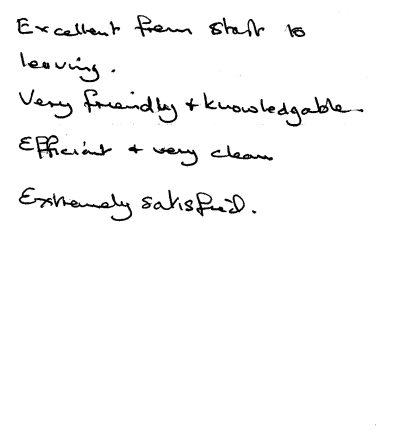 Excellent from start to
leaving.
Very friendly + knowledgable
Efficient + very clean
Extremely satisfied.